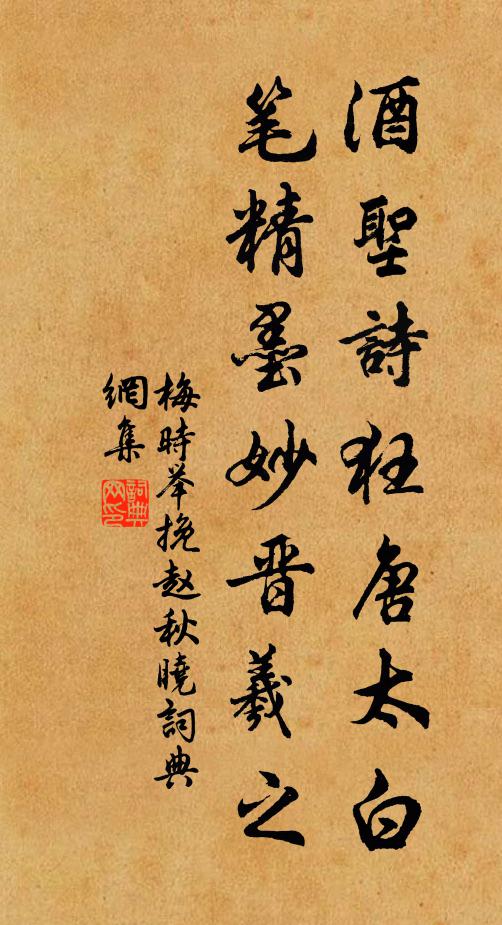 酒聖詩狂唐太白
笔精墨妙晋羲之
梅時举挽赵秋曉詞典
網集
詞典
网印